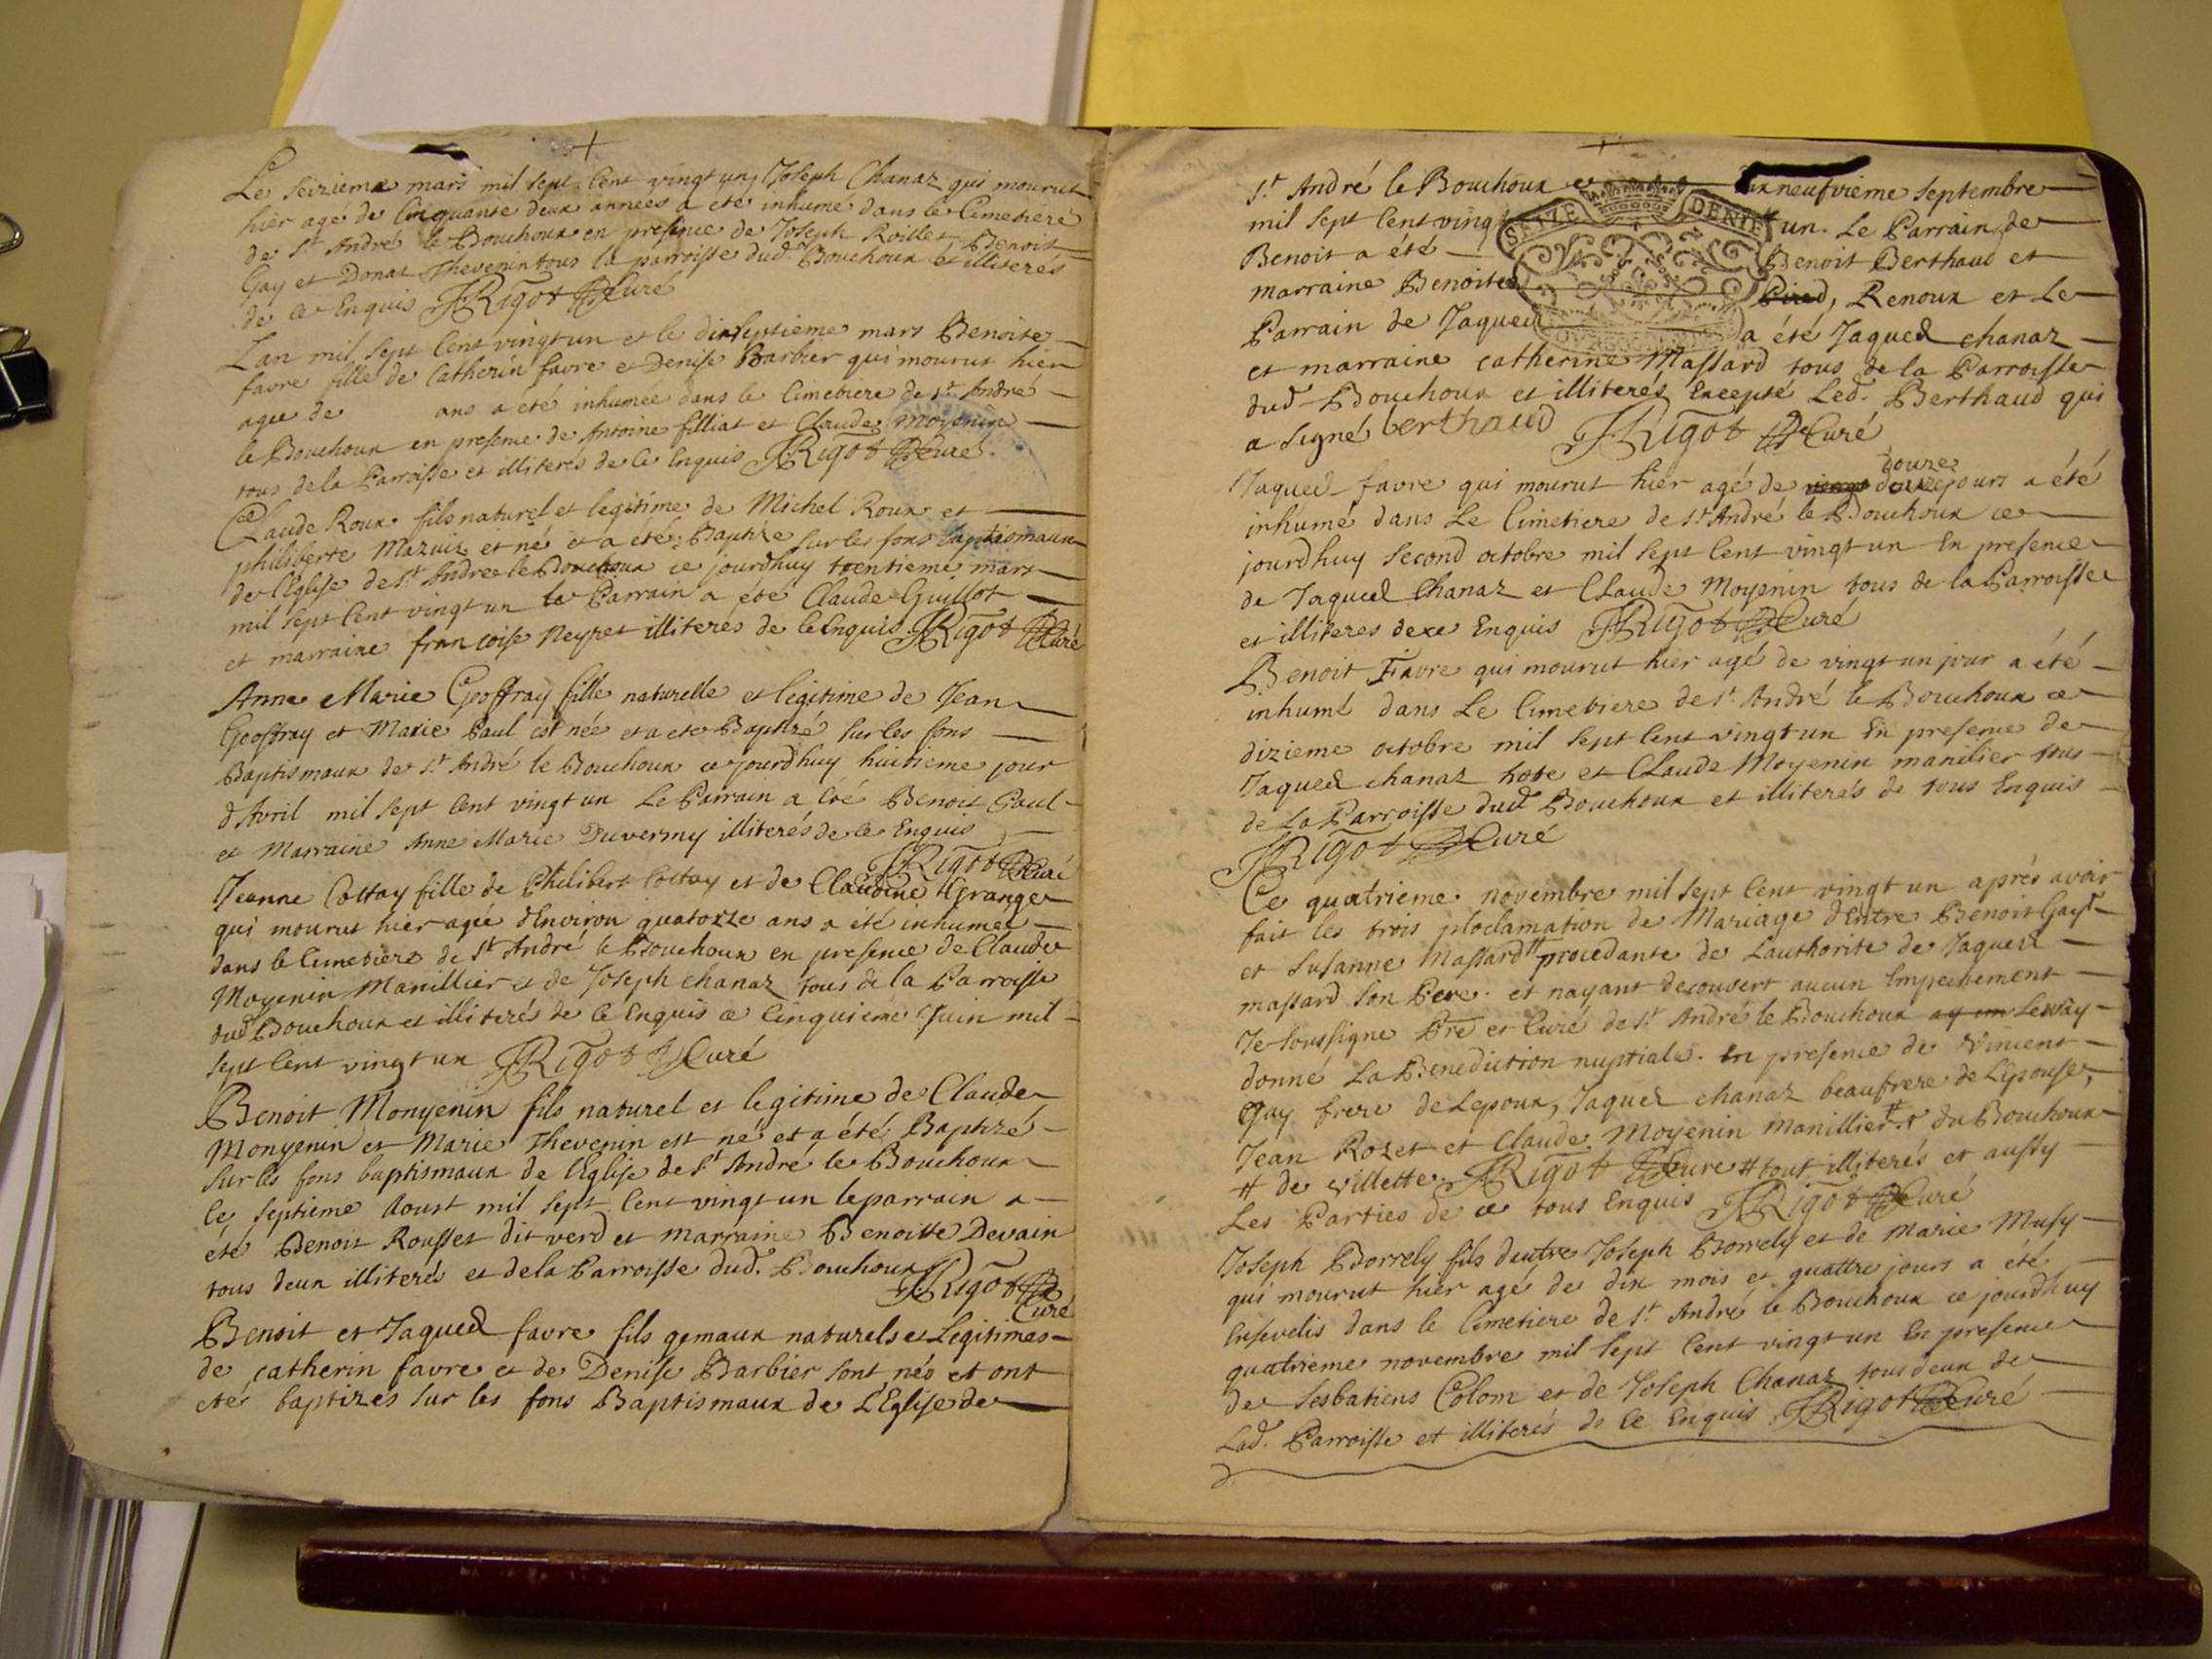 Le seizieme mars mil sept Cent vingt un Joseph Chanaz qui mourut
hier agé de Cinquante deux années a eté inhumé dans le Cimetiere
de St. André le Bouchoux en presence de Joseph Roillet Benoit
Gay et Donat Thevenin tous la parroisse dud. Bouchoux et illiterés
de ce Enquis JRigot Curé
Lan mil sept Cent vingt un et le dixseptieme mars Benoite
favre fille de Catherin favre et Denise Barbier qui mourut hier
agee de ans a eté inhumée dans le Cimetiere de St. André
le Bouchoux en presence de Antoine filliat et Claude Moyenin
tous de la Parroisse et illiterés de Ce Enquis JRigot Curé.
Claude Roux fils naturel et legitime de Michel Roux et
philiberte Mazuit et né et a eté Baptizé sur les fons baptismaux
de lEglise de St. Andree le Bouchoux ce jourdhuy trentieme mars
mil sept Cent vingt un le Parrain a été Claude Guillot
et marraine francoise Neyret illiterés de ce Enquis JRigot Curé
Anne Marie Geoffray fille naturelle et legitime de Jean
Geoffray et Marie Paul est née et a ete Baptizé sur les fons
Baptismaux de St. André le Bouchoux ce jourdhuy huitieme jour
dAvril mil sept Cent vingt un Le Parrain a Eté Benoit Paul
et Marraine Anne Marie Duverny illiterés de ce Enquis
JRigot Curé
Jeanne Cottay fille de Philibert Cottay et de Claudine Grange
qui mourut hier agée dEnviron quatorze ans a été inhumee
dans le Cimetiere de St André le Bouchoux en presence de Claude
Moyenin Manillier et de Joseph chanaz tous de la Parroisse
dud Bouchoux et illiterés de ce Enquis ce Cinquieme Juin mil
sept Cent vingt un JRigot Curé
Benoit Monyenin fils naturel et legitime de Claude
Monyenin et Marie Thevenin est né et a été Baptizé
sur les fons baptismaux de lEglise de St André le Bouchoux
le septieme Aoust mil sept Cent vingt un le parrain a
eté Benoit Rousset dit verd et marraine Benoitte Devain
tous deux illiterés et de la Parroisse dud. Bouchoux JRigot
Curé
Benoit et Jaques favre fils gemaux naturels et Legitimes
de catherin favre et de Denise Barbier sont nés et ont
eté baptizés sur les fons Baptismaux de LEglise de
St André le Bouchoux ce dixneufvieme septembre
SEIZE DENIE
mil sept Cent vingt un. Le Parrain de
Benoit a été Benoit Berthaud et
marraine Benoite Renoux et Le
Parrain de Jaques a été Jaques chanaz
et marraine catherine Massard tous de la Parroisse
dud Bouchoux et illiterés Excepté Led. Berthaud qui
a signé berthaud JRigot Curé
douze
Jaques favre qui mourut hier agé de jours a été
inhumé dans Le Cimetiere de St André le Bouchoux ce
jourdhuy second octobre mil sept Cent vingt un En presence
de Jaques Chanaz et Claude Moyenin tous de la Parroisse
et illiteres de ce Enquis JRigot Curé
Benoit Favre qui mourut hier agé de vingt un jour a été
inhumé dans Le Cimetiere de St. André le Bouchoux ce
dizieme octobre mil sept Cent vingt un En presence de
Jaques chanaz hote et Claude Moyenin manilier tous
de La Parroisse dud Bouchoux et illiterés de tous Enquis
JRigot Curé
Ce quatrieme novembre mil sept Cent vingt un aprés avoir
fait les trois ploclamation de Mariage dEntre Benoit Gay
et Susanne Massard procedante de Lauthorite de Jaques
massard son Pere. et nayant decouvert aucun Empechement
Je soussigne Pre et Curé de St. André le Bouchoux Leur ay
donné La Benediction nuptiale. En presence de Vincent
Gay frere de Lepoux, Jaques chanaz beaufrere de Lepouse,
Jean Rozet et Claude Moyenin Manillier du Bouchoux
# de villette JRigot Curé # tout illiterés et aussy
Les Parties de ce tous Enquis JRigot Curé
Joseph Borrely fils dautre Joseph Borrely et de Marie Musy
qui mourut hier agé de dix mois et quattre jours a été
Ensevelis dans le Cimetiere de St. André le Bouchoux ce jourdhuy
quatrieme novembre mil sept Cent vingt un En presence
de Sesbatiens Colom et de Joseph Chanaz tous deux de
Lad. Parroisse et illiterés de ce Enquis JRigot Curé